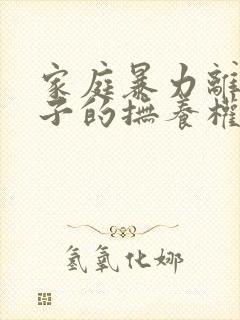 家庭暴力離
子的撫養權
氢氧化娜